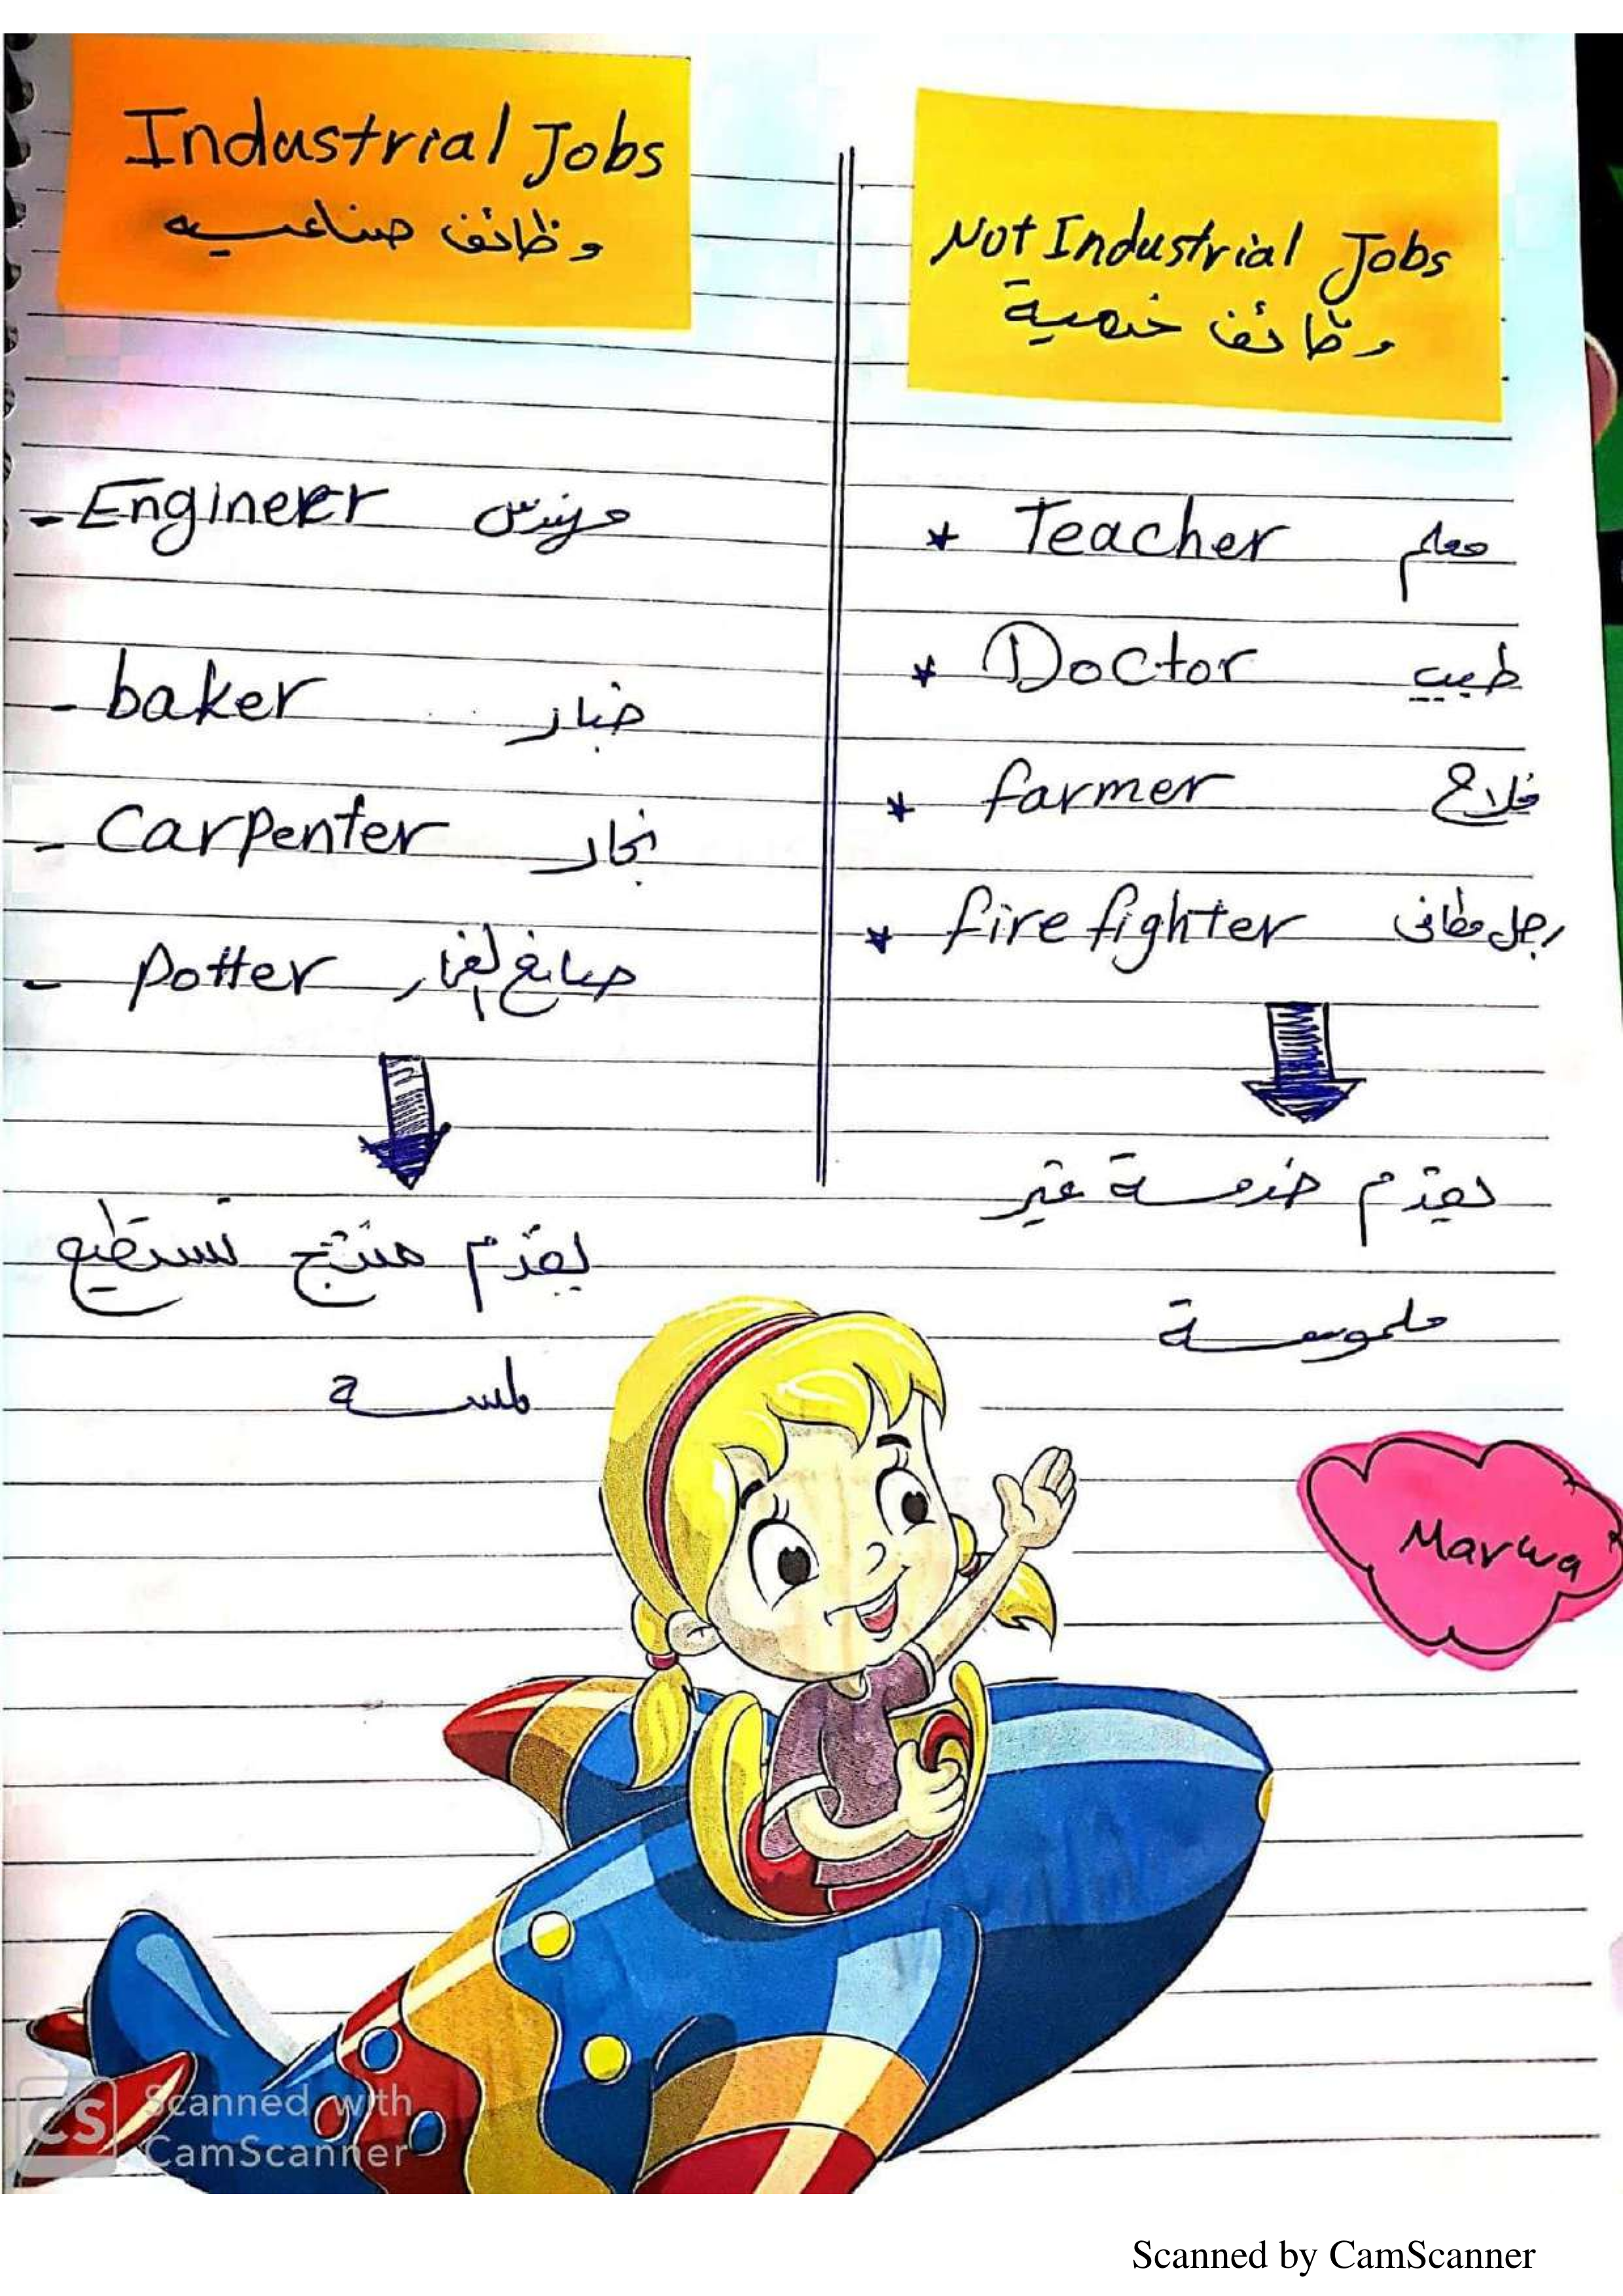 Industrial Jobs
وظائف صناعيه
- Engineer مهندس
- baker خباز
- Carpenter نجار
- Potter صانع الفخار
يقدم منتج تستطيع
لمسة
Not Industrial Jobs
وظائف خدمية
* Teacher معلم
* Doctor طبيب
* farmer فلاح
* fire fighter رجل مطافى
يقدم خدمسة غير
ملموسة
Marwa
CS Scanned with
CamScanner
Scanned by CamScanner